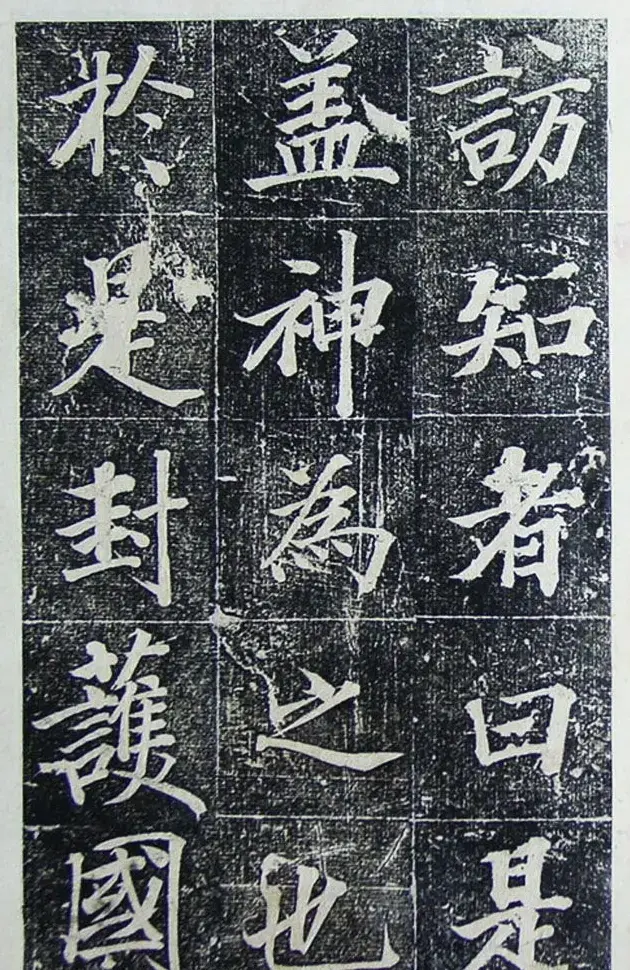 訪知者曰是
盖神為之也
於是封護國